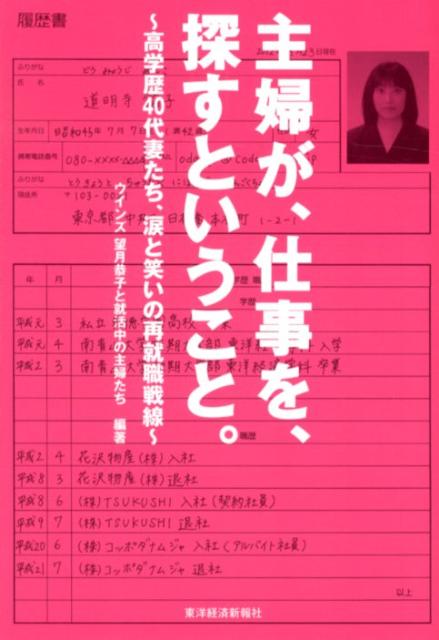 履歴書
主婦が、仕事を、
探すということ。
〜高学歴40代妻たち、涙と笑いの再就職戦線〜
ウインズ 望月恭子と就活中の主婦たち 編著
日現在
ふりがな
氏名
道明寺 子
生年月日 昭和45年 7月 7 満42歳 女
携帯電話番号 080-xxxx-
ふりがな とうきょうと
現住所 〒103-00
東京都中 日本 本 町 1-2-1
年 月 学歴 職
学歴
平成元 3 私立 高校
平成元 4 南青 大学 期大 部 東洋 科 入学
平成2 3 南青 大学 期大 部 東洋経済学科 卒業
職歴
平成2 4 花沢物産(株)入社
平成8 3 花沢物産(株)退社
平成8 6 (株)TSUKUSHI 入社(契約社員)
平成9 7 (株)TSUKUSHI 退社
平成20 6 (株)コッポダナムジャ 入社(アルバイト社員)
平成21 7 (株)コッポダナムジャ 退社
以上
東洋経済新報社